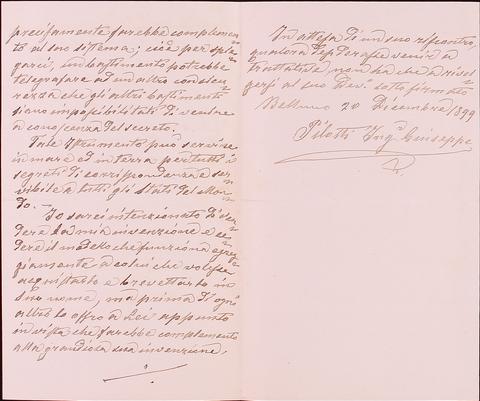 precisamente farebbe complemen-
to al suo sistema; cioè per spie-
garci, un bastimento potrebbe
telegrafare ad un altro con sicu-
rezza che gli altri bastimenti
siano impossibilitati di venire
a conoscenza del secreto.
Tale Istrumento può servire
in mare ed in terra per tutti i
segreti di corrispondenza e ser-
vibile a tutti gli Stati del Mon-
do.—
Io sarei intenzionato di ven-
dere la mia invenzione e ce-
dere il modello che funziona egre-
giamente a colui che volesse
acquistarlo e brevettarlo in
suo nome, ma prima d'ogni
altro lo offro a Lei appunto
in vista che farebbe complemento
alla grandiosa sua invenzione.
In attesa di un suo riscontro,
qualora desiderasse venire a
trattative, non ha che a rivol-
gersi al suo Dev. sottofirmato
Belluno 20 Dicembre 1899
Pilotti Ing. Giuseppe